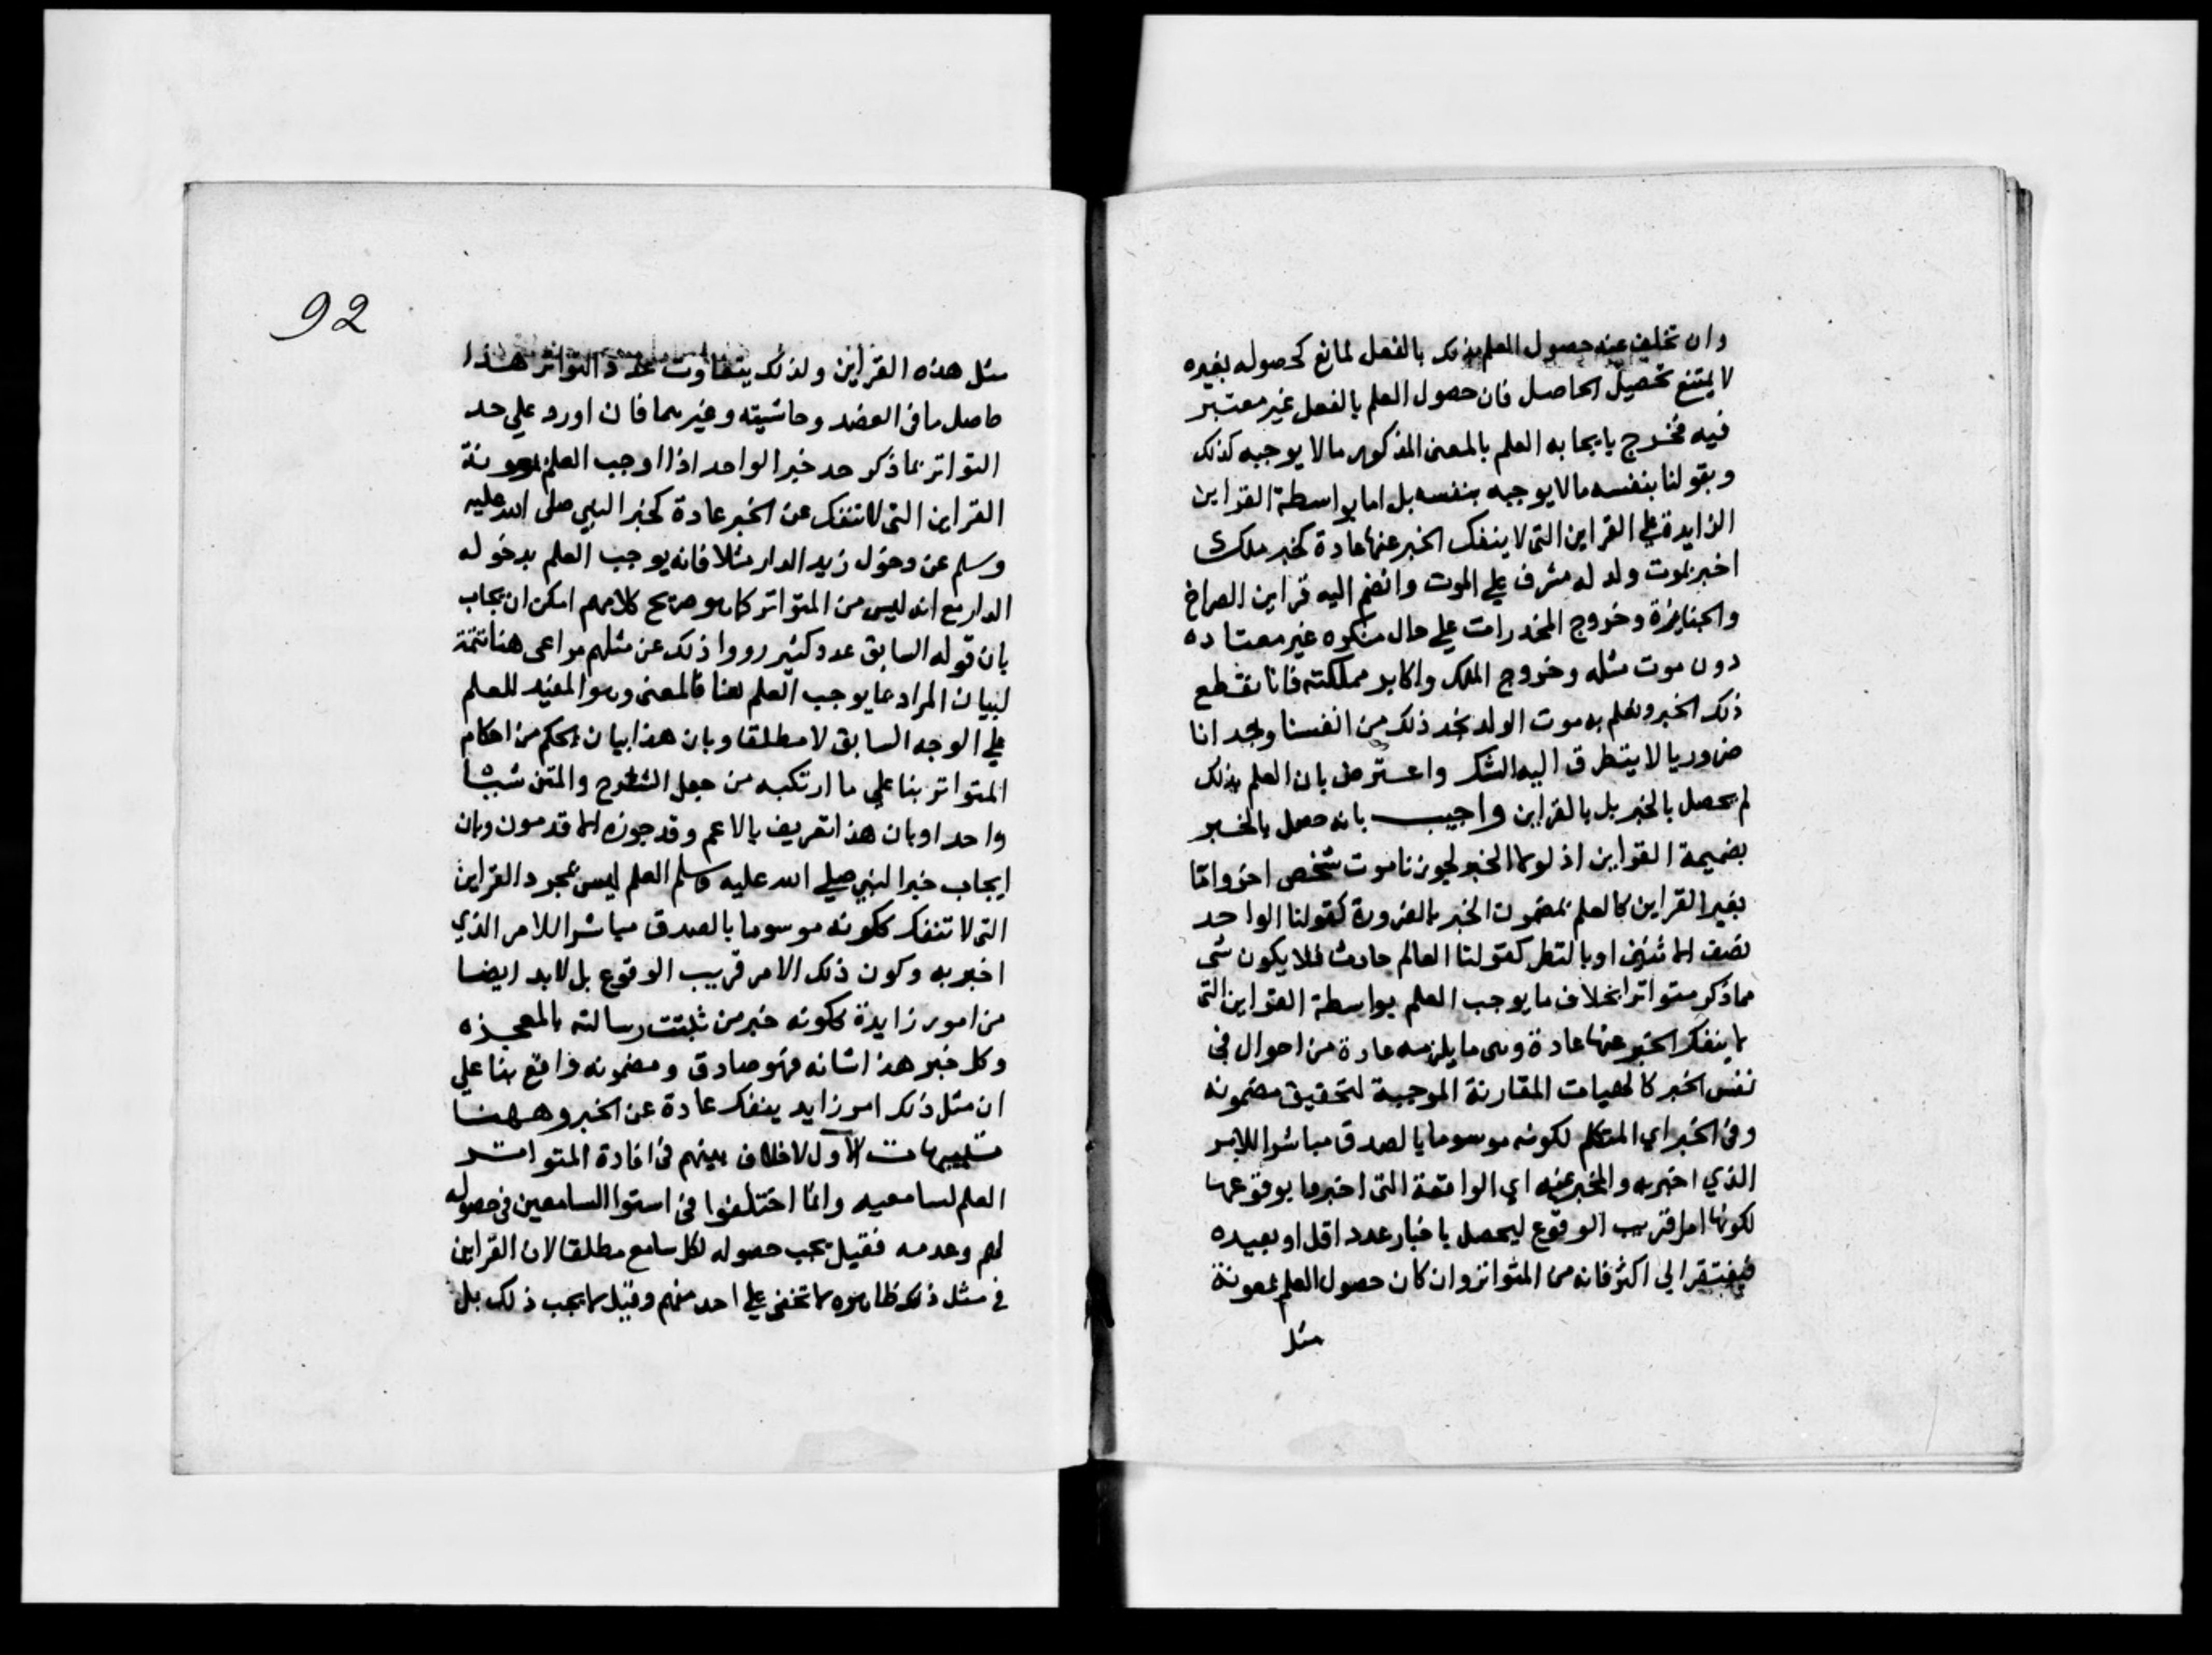 وان تخلف عنه حصول العلم بذلك بالفعل لمانع كحصوله بغيره
لا يمتنع تحصيل الحاصل فان حصول العلم بالفعل غير معتبر
فيه فخرج بايجابه العلم بالمعنى المذكور مالا يوجبه كذلك
وبقولنا بنفسه مالا يوجبه بنفسه بل اما بواسطة القراين
الزايدة على القراين التى لا ينفك الخبر عنها عادة كخبر ملك
اخبر بموت ولد له مشرف على الموت وانضم اليه قراين الصراخ
والجنايزة وخروج المخدرات على حال منكره غير معتاده
دون موت مثله وخروج الملك واكابر مملكته فانا نقطع
ذلك الخبر ونعلم به موت الولد نجد ذلك من انفسنا وجدانا
ضروريا لا يتطرق اليه الشك واعترض بان العلم بذلك
لم يحصل بالخبر بل بالقراين واجيب بانه حصل بالخبر
بضميمة القراين اذ لولا الخبر لجوزنا موت شخص اخر واما
بغير القراين كالعلم بمضمون الخبر بالضرورة كقولنا الواحد
نصف الاثنين او بالنظر كقولنا العالم حادث فلا يكون شى
مما ذكر متواترا بخلاف ما يوجب العلم بواسطة القراين التى
لا ينفك الخبر عنها عادة وهى ما يلزمه عادة من احوال فى
نفس الخبر كالهيات المقارنة الموجبة لتحقيق مضمونه
وفى الخبر اي المتكلم لكونه موسوما بالصدق مباشرا للامر
الذي اخبر به والمخبر عنه اي الواقعة التى اخبروا بوقوعها
لكونها امرا قريب الوقوع ليحصل باخبار عدد اقل او بعيده
فيفتقر الي اكثر فانه من المتواتر وان كان حصول العلم بمعونة
مثل
92
مثل هذه القراين ولذلك يتفاوت عدد التواتر هذا
حاصل ما فى العضد وحاشيته وغيرهما فان اورد علي حد
التواتر بما ذكر حد خبر الواحد اذا اوجب العلم بمعونة
القراين التى لا تنفك عن الخبر عادة كخبر النبي صلى الله عليه
وسلم عن دخول زيد الدار مثلا فانه يوجب العلم بدخوله
الدار مع انه ليس من المتواتر كما هو صريح كلامهم امكن ان يجاب
بان قوله السابق عدد كثير رووا ذلك عن مثلهم مراعى هنا تتمة
لبيان المراد بما يوجب العلم هنا فالمعنى وهو المفيد للعلم
على الوجه السابق لا مطلقا وبان هذا بيان لحكم من احكام
المتواتر بنا على ما ارتكبه من جعل الشرح والمتن شيئا
واحدا وبان هذا تعريف بالاعم وقد جوزه الاقدمون وبان
ايجاب خبر النبي صلى الله عليه وسلم العلم ليس بمجرد القراين
التى لا تنفك ككونه موسوما بالصدق مباشرا للامر الذي
اخبر به وكون ذلك الامر قريب الوقوع بل لابد ايضا
من امور زايدة ككونه خبر من ثبتت رسالته بالمعجزه
وكل خبر هذا شانه فهو صادق ومضمونه واقع بنا على
ان مثل ذلك امر زايد ينفك عادة عن الخبر وههنا
تنبيهات الاول لا خلاف بينهم فى افادة المتواتر
العلم لسامعيه وانما اختلفوا فى استوا السامعين فى حصوله
لهم وعدمه فقيل يجب حصوله لكل سامع مطلقا لان القراين
فى مثل ذلك ظاهره لا تخفى على احد منهم وقيل لا يجب ذلك بل